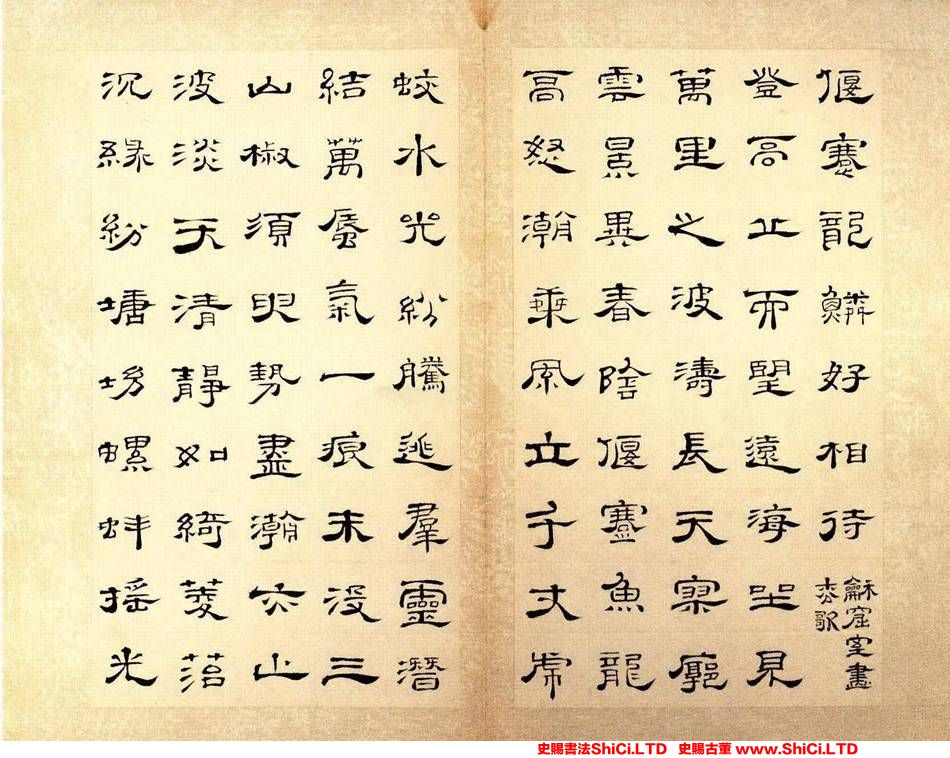 偃蹇龍鱗好相待 龢窟室畫
松歌
登高丘而望遠海坐見
萬里之波濤長天寥廓
雲景異春陰偃蹇魚龍
高怒潮乘風立千丈虎
蛟水光紛騰逃羣靈潛
結萬蜃氣一痕未沒三
山椒須臾勢盡潮亦止
波淡天清靜如綺菱菭
沉綠紛塘坳螺蚌搖光
史賜書法ShiCi.LTD 史賜古董 www.ShiCi.LTD